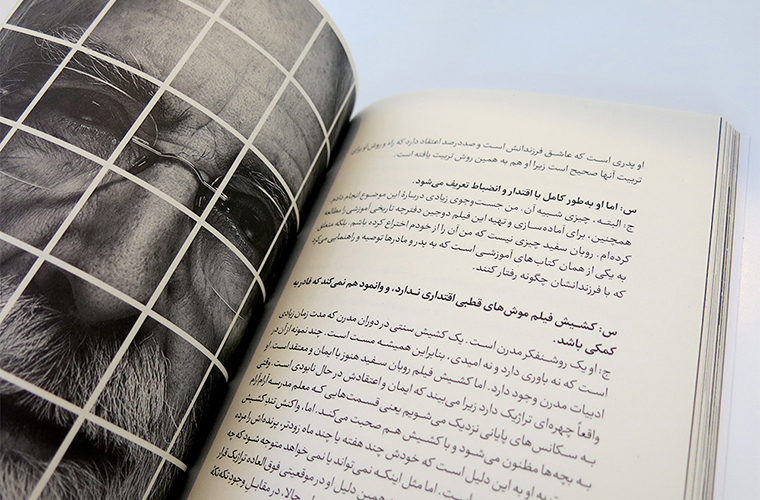 او پدری است که عاشق فرزندانش است و صددرصد اعتقاد دارد که راه و روش او برای
تربیت آنها صحیح است زیرا او هم به همین روش تربیت یافته است.
س: اما او به‌طور کامل با اقتدار و انضباط تعریف می‌شود.
ج: البته، چیزی شبیه آن. من جست‌وجوی زیادی دربارهٔ این موضوع انجام دادم.
همچنین، برای آماده‌سازی و تهیه این فیلم دوجین دفترچه تاریخی آموزشی را مطالعه
کرده‌ام. روبان سفید چیزی نیست که من آن را از خودم اختراع کرده باشم، بلکه متعلق
به یکی از همان کتاب‌های آموزشی است که به پدر و مادرها توصیه و راهنمایی می‌کرد
که با فرزندانشان چگونه رفتار کنند.
س: کشیش فیلم موش‌های قطبی اقتداری ندارد، و وانمود هم نمی‌کند که قادر به
کمکی باشد.
ج: او یک روشنفکر مدرن است. یک کشیش سنتی در دوران مدرن که مدت زمان زیادی
است که نه باوری دارد و نه امیدی، بنابراین همیشه مست است. چند نمونه از آن در
ادبیات مدرن وجود دارد. اما کشیش فیلم روبان سفید هنوز با ایمان و معتقد است. او
واقعاً چهره‌ای تراژیک دارد زیرا می‌بیند که ایمان و اعتقادش در حال نابودی است. وقتی
به سکانس‌های پایانی نزدیک می‌شویم یعنی قسمت‌هایی که معلم مدرسه آرام‌آرام
به بچه‌ها مظنون می‌شود و با کشیش هم صحبت می‌کند. اما، واکنش تند کشیش
به او به این دلیل است که خودش چند هفته یا چند ماه زودتر، پرنده‌اش را مرده
است. اما مثل اینکه نمی‌تواند یا نمی‌خواهد متوجه شود که چه
همین دلیل او در موقعیتی فوق‌العاده تراژیک قرار
حالا، در مقابل وجود تکه‌تکهٔ